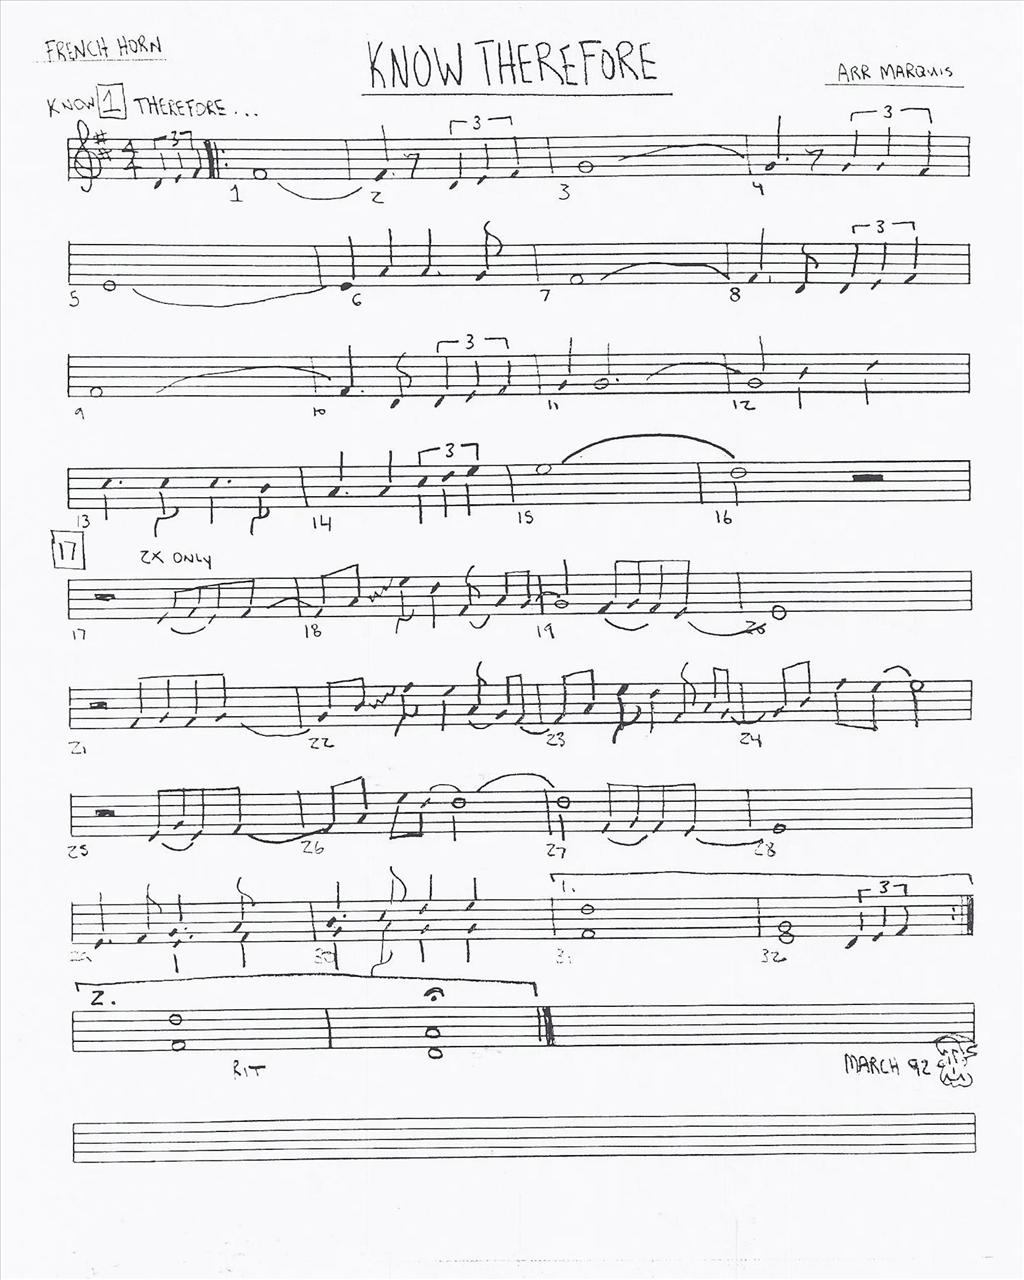 FRENCH HORN
KNOW THEREFORE
ARR MARQUIS
KNOW 1 THEREFORE...
4
4
3 3 3 3
1 2 3 4
3
5 6 7 8
3
9 10 11 12
3
13 14 15 16
17
2X ONLY
17 18 19 20
21 22 23 24
25 26 27 28
1. 3
29 30 31 32
2.
RIT
MARCH 92